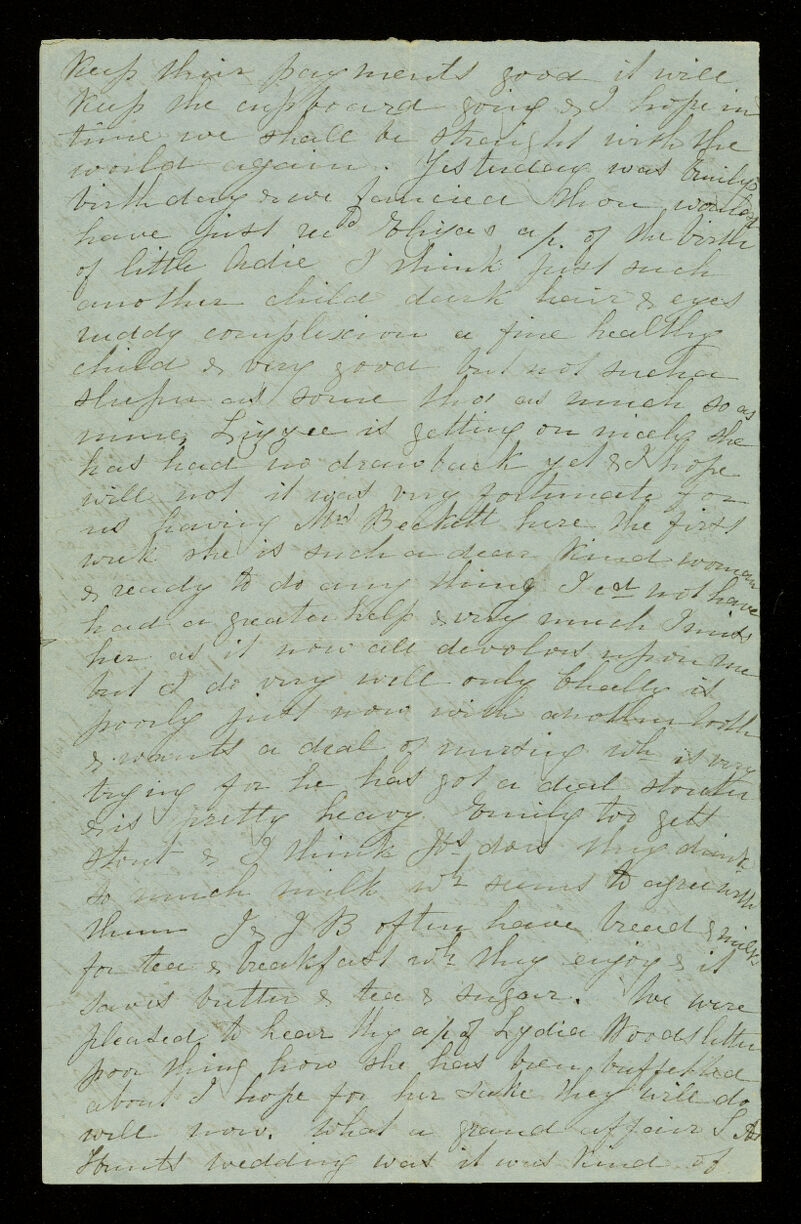 keep their payments good it will
keep the cupboard going & I hope in
time we shall be straight with the
world again. Yesterday was Emilys
birthday & we fancied thou wouldst
have just recd Elizas a/c of the birth
of little Adie I think just such
another child dark hair & eyes
ruddy complexion a fine healthy
child & very good but not such a
sleeper as some tho as much so as
mine, Lizzee is getting on nicely she
has had no drawback yet & I hope
will not it was very fortunate for
us having Mrs Beckett here the first
week she is such a dear kind woman
& ready to do any thing I cd not have
had a greater help & very much I miss
her as it now all devolves upon me
but I do very well only Chally is
poorly just now with another tooth
& wants a deal of nursing wh is very
trying for he has got a deal stouter
& is pretty heavy. Emily too gets
stout & I think Jos does they drink
so much milk wh seems to agree with
them J & J B often have bread & milk
for tea & breakfast wh they enjoy & it
saves butter & tea & sugar. We were
pleased to hear thy a/c of Lydia Woods letter
poor thing how she has been buffetted
about I hope for her sake they will do
well now. What a grand affair S A
Hunts wedding was it was kind of